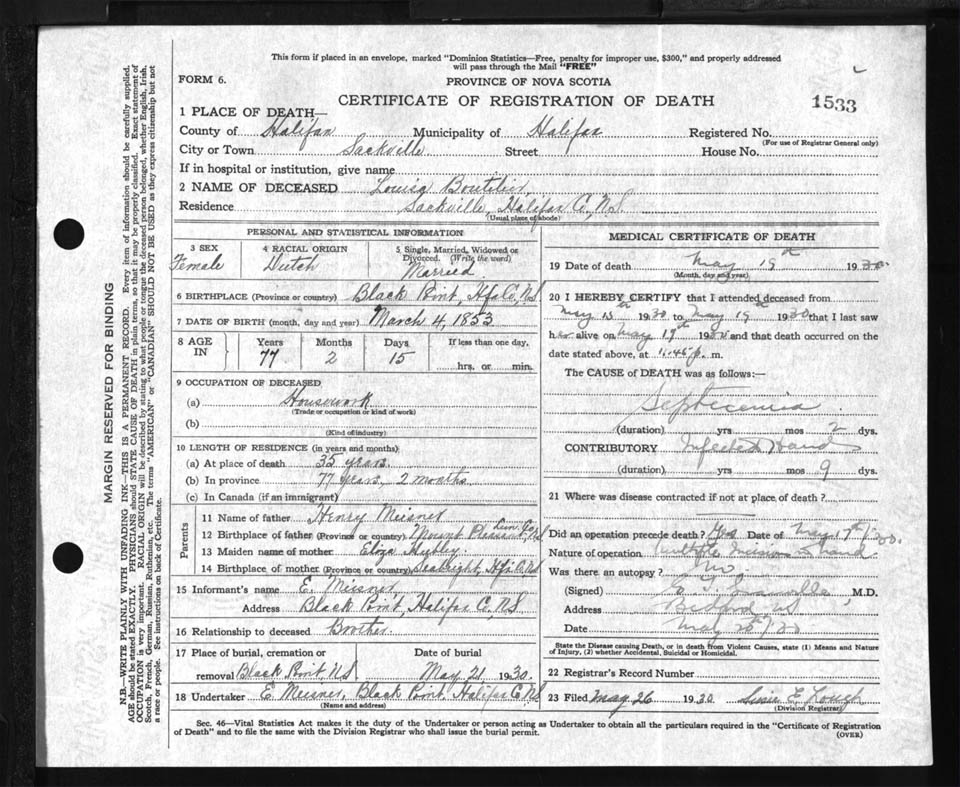 This form if placed in an envelope, marked "Dominion Statistics—Free, penalty for improper use, $300," and properly addressed
will pass through the Mail "FREE"
FORM 6.
PROVINCE OF NOVA SCOTIA
CERTIFICATE OF REGISTRATION OF DEATH
1533
1 PLACE OF DEATH—
County of Halifax Municipality of Halifax Registered No.
(For use of Registrar General only)
City or Town Sackville Street House No.
If in hospital or institution, give name
2 NAME OF DECEASED Louisa Boutilier
Residence Sackville, Halifax Co, N.S.
(Usual place of abode)
PERSONAL AND STATISTICAL INFORMATION
3 SEX
Female
4 RACIAL ORIGIN
Dutch
5 Single, Married, Widowed or
Divorced. (Write the word)
Married
6 BIRTHPLACE (Province or country) Black Point, Hfx Co, N.S.
7 DATE OF BIRTH (month, day and year) March 4, 1853
8 AGE
IN
Years Months Days If less than one day,
77 2 15 hrs. or min.
9 OCCUPATION OF DECEASED
(a) Housework
(Trade or occupation or kind of work)
(b)
(Kind of industry)
10 LENGTH OF RESIDENCE (in years and months)
(a) At place of death 35 years
(b) In province 77 years, 2 months
(c) In Canada (if an immigrant)
Parents
11 Name of father Henry Meisner
12 Birthplace of father (Province or country) Mount Pleasant, Lun. Co. N.S.
13 Maiden name of mother Eliza Hubley
14 Birthplace of mother (Province or country) Seabright, Hfx Co. N.S.
15 Informant's name E. Meisner
Address Black Point, Halifax Co, N.S.
16 Relationship to deceased Brother
17 Place of burial, cremation or Date of burial
removal Black Point, N.S. May 21 1930
18 Undertaker E. Meisner, Black Point, Halifax Co N.S.
(Name and address)
MEDICAL CERTIFICATE OF DEATH
19 Date of death May 19th 1930
(Month, day and year)
20 I HEREBY CERTIFY that I attended deceased from
May 1930 to May 19th 1930 that I last saw
her alive on May 19th 1930 and that death occurred on the
date stated above, at 11.45 p. m.
The CAUSE of DEATH was as follows:—
Septicemia
(duration) yrs mos 2 dys.
CONTRIBUTORY Infected Hand
(duration) yrs mos 9 dys.
21 Where was disease contracted if not at place of death?
Did an operation precede death? Yes Date of May 17th/30.
Nature of operation multiple incisions hand
Was there an autopsy? No.
(Signed) M.D.
Address Bedford NS
Date May 20th/30
State the Disease causing Death, or in death from Violent Causes, state (1) Means and Nature
of Injury, (2) whether Accidental, Suicidal or Homicidal.
22 Registrar's Record Number
23 Filed May 26 1930
(Division Registrar)
Sec. 46—Vital Statistics Act makes it the duty of the Undertaker or person acting as Undertaker to obtain all the particulars required in the "Certificate of Registration
of Death" and to file the same with the Division Registrar who shall issue the burial permit.
(OVER)
MARGIN RESERVED FOR BINDING
N.B.—WRITE PLAINLY WITH UNFADING INK—THIS IS A PERMANENT RECORD. Every item of information should be carefully supplied.
AGE should be stated EXACTLY. PHYSICIANS should STATE CAUSE OF DEATH in plain terms, so that it may be properly classified. Exact statement of
OCCUPATION is very important. RACIAL ORIGIN will be described by stating to what people or tongue the deceased person belonged, whether English, Irish,
Scotch, French, German, Russian, Ruthenian, etc. The terms "AMERICAN" or "CANADIAN" SHOULD NOT BE USED as they express citizenship but not
a race or people. See instructions on back of Certificate.